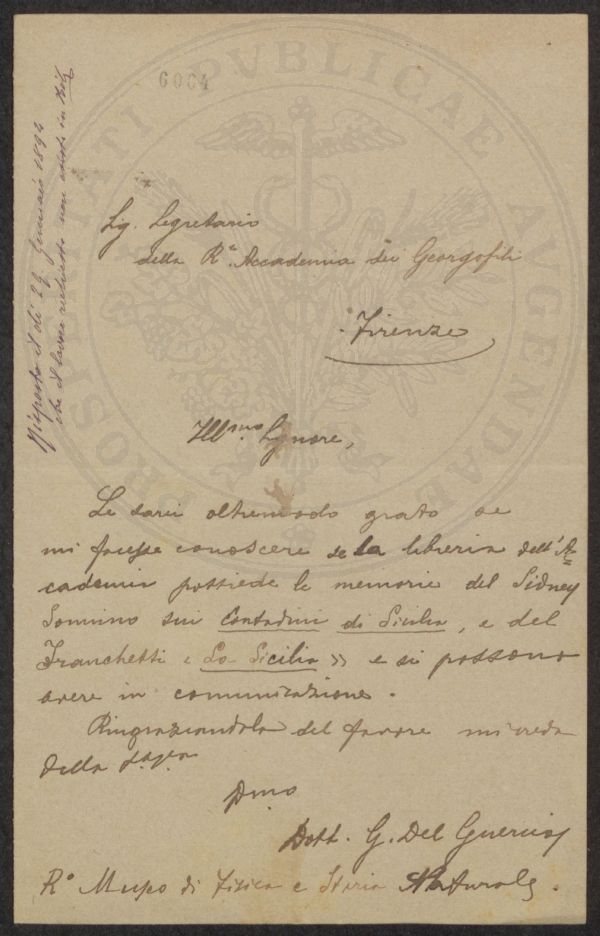 6004
PROSPERITATI PVBLICAE AVGENDAE
Risposto il dì 29 Gennaio 1894
che il lavoro richiesto non esiste in
Sig. Segretario
della Rª. Accademia dei Georgofili
Firenze
Illmo. Signore,
Le sarei oltremodo grato se
mi facesse conoscere se la libreria dell'Ac
cademia possiede le memorie del Sidney
Sonnino sui Contadini di Sicilia, e del
Franchetti « La Sicilia » e si possono
avere in comunicazione.
Ringraziandola del favore mi creda
Della
Dmo
Dott. G. Del Guercio
Rº Museo di Fisica e Storia Naturale.